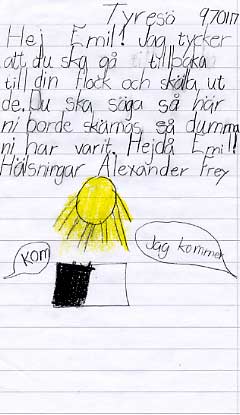 Tyresö 970117
Hej Emil! Jag tycker
att du ska gå tillbaka
till din flock och skälla ut
de. Du ska säga så här
ni borde skämas så dumma
ni har varit. Hejdå Emil!
Hälsningar Alexander Frey
Kom
Jag kommer